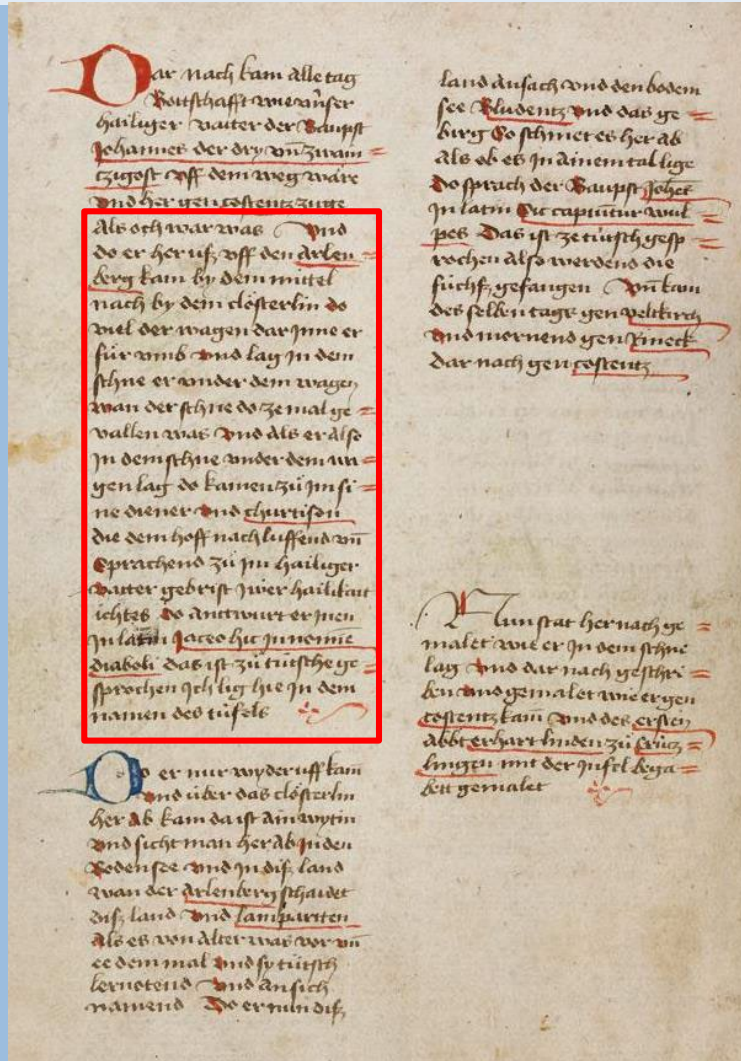 Dar nach kam alle tag
Bottschafft wie vnser
hailiger vatter der Baupst
Johannes der dry vn̄ zwain =
tzigost vff dem weg wäre
vnd her gen costentz zuge
Als och war was Vnd
do er her uff vff den Arlen =
berg kam by dem mittel
nach by dem clösterlin do
viel der wagen dar Jnne er
für vmb vnd lag Jn dem
schne er vnder dem wagen
wan der schne do ze mal ge =
vallen was Vnd als er also
Jn dem schne vnder dem wa =
gen lag do kamen zů jm si =
ne diener vnd churtison
die dem hoff nach luffend vn̄
Sprachend zů jm hailiger
vatter gebrist jwer hailikait
ichtes Do antwurt er jnen
Jn latin Jaceo hic Jn nomīe
diaboli das ist zů tütsche ge =
sprochen Ich lig hie Jn dem
namen des tüfels
Do er nun wyder uff kam
vnd über das clösterlin
her ab kam da ist ain wytin
vnd sicht man her ab Jn den
Bodensee vnd Jn diß land
wan der Arlenberg schaidet
diß land vnd lampartten
Als es von alter was vor vn̄
ee dem mal vnd sy tütsch
lernotend vnd an sich
namend Do er nun diß
land ansach vnd den bodem
see Bludentz vnd das ge =
birg So schinet es her ab
als ob es Jn ainem tal lige
Do sprach der Baupst Johēs
Jn latin Sic capiūtur wul =
pes Das ist ze tütsch gesp =
rochen also werdend die
füchß gefangen Vn̄ kam
des selben tags gen veltkirch
vnd mornend gen Rineck
dar nach gen costentz
Nun stat her nach ge =
malet wie er Jn dem schne
lag vnd dar nach geschri =
ben vnd gemalet wie er gen
costentz kam vnd des ersten
abbt erhart linden zů Crütz =
lingen mit der Jnfel bega =
bett gemalet